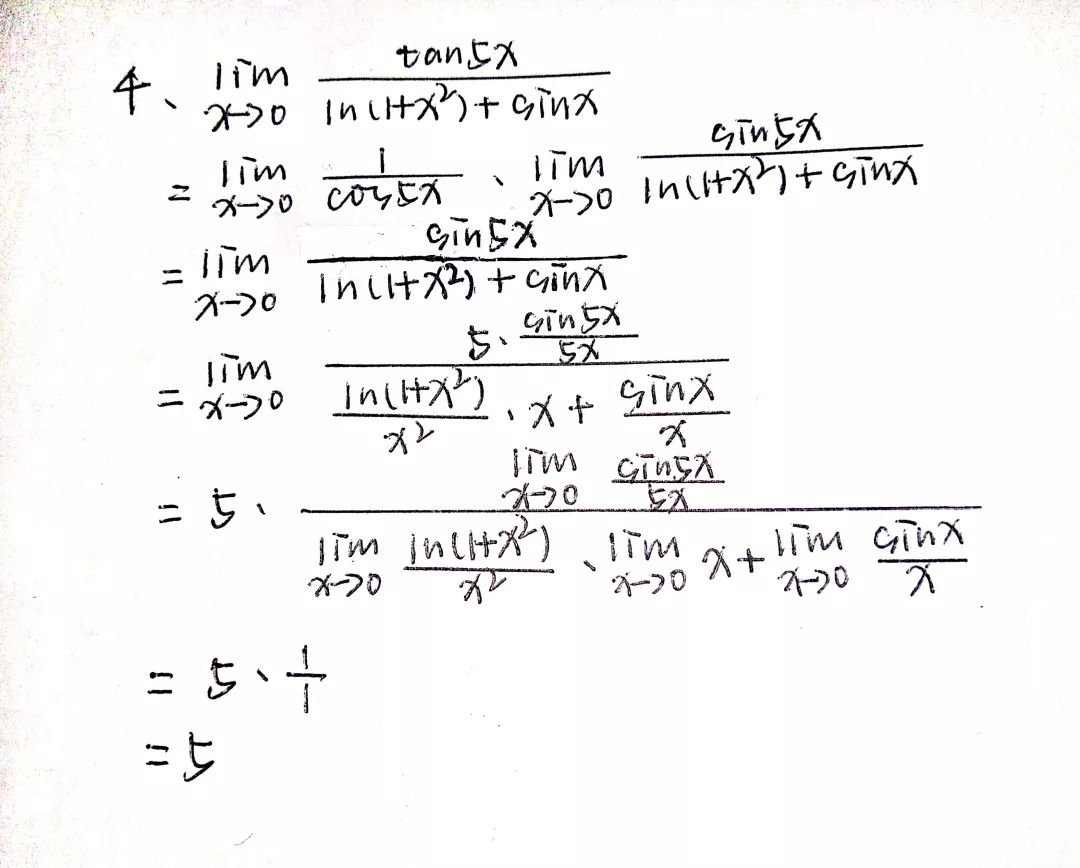 4、lim x→0 tan5x / (ln(1+x²) + sinx)
= lim x→0 1/cos5x · lim x→0 sin5x / (ln(1+x²) + sinx)
= lim x→0 sin5x / (ln(1+x²) + sinx)
= lim x→0 (5 · sin5x/5x) / (ln(1+x²)/x² · x + sinx/x)
= 5 · (lim x→0 sin5x/5x) / (lim x→0 ln(1+x²)/x² · lim x→0 x + lim x→0 sinx/x)
= 5 · 1/1
= 5